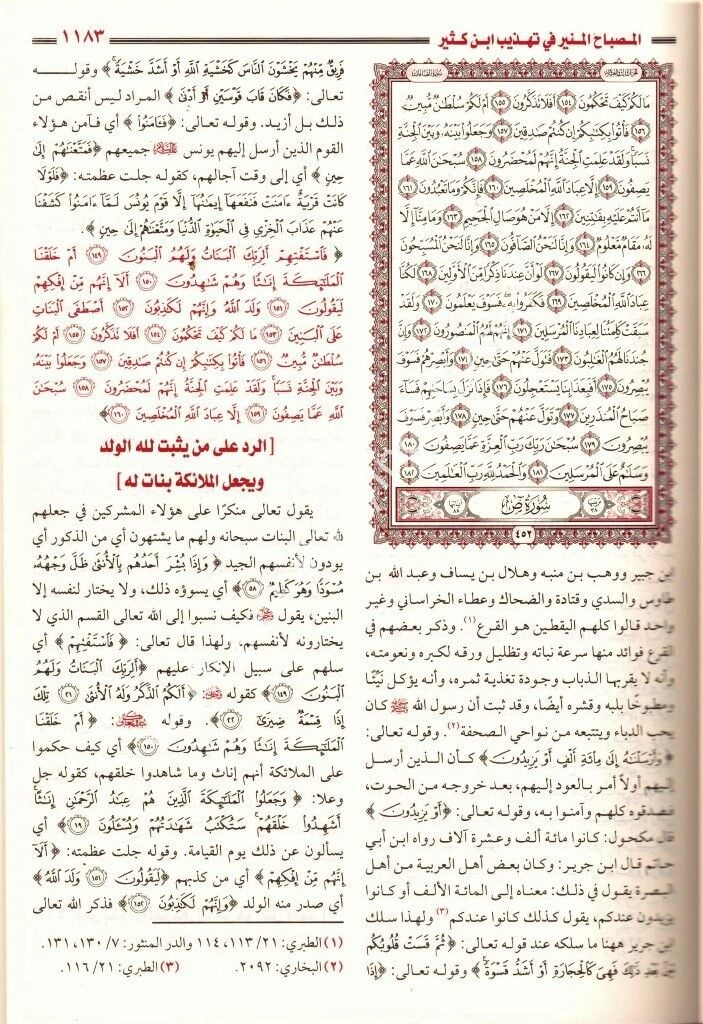 المصباح المنير في تهذيب ابن كثير
١١٨٣
مَا لَكُمْ كَيْفَ تَحْكُمُونَ ١٥٤ أَفَلَا تَذَكَّرُونَ ١٥٥ أَمْ لَكُمْ سُلْطَٰنٌ مُّبِينٌ
١٥٦ فَأْتُوا بِكِتَٰبِكُمْ إِن كُنتُمْ صَٰدِقِينَ ١٥٧ وَجَعَلُوا بَيْنَهُ وَبَيْنَ الْجِنَّةِ
نَسَبًا وَلَقَدْ عَلِمَتِ الْجِنَّةُ إِنَّهُمْ لَمُحْضَرُونَ ١٥٨ سُبْحَٰنَ اللَّهِ عَمَّا
يَصِفُونَ ١٥٩ إِلَّا عِبَادَ اللَّهِ الْمُخْلَصِينَ ١٦٠ فَإِنَّكُمْ وَمَا تَعْبُدُونَ ١٦١
مَا أَنتُمْ عَلَيْهِ بِفَٰتِنِينَ ١٦٢ إِلَّا مَنْ هُوَ صَالِ الْجَحِيمِ ١٦٣ وَمَا مِنَّا إِلَّا
لَهُ مَقَامٌ مَّعْلُومٌ ١٦٤ وَإِنَّا لَنَحْنُ الصَّافُّونَ ١٦٥ وَإِنَّا لَنَحْنُ الْمُسَبِّحُونَ
١٦٦ وَإِن كَانُوا لَيَقُولُونَ ١٦٧ لَوْ أَنَّ عِندَنَا ذِكْرًا مِّنَ الْأَوَّلِينَ ١٦٨ لَكُنَّا
عِبَادَ اللَّهِ الْمُخْلَصِينَ ١٦٩ فَكَفَرُوا بِهِ فَسَوْفَ يَعْلَمُونَ ١٧٠ وَلَقَدْ
سَبَقَتْ كَلِمَتُنَا لِعِبَادِنَا الْمُرْسَلِينَ ١٧١ إِنَّهُمْ لَهُمُ الْمَنصُورُونَ ١٧٢ وَإِنَّ
جُندَنَا لَهُمُ الْغَٰلِبُونَ ١٧٣ فَتَوَلَّ عَنْهُمْ حَتَّىٰ حِينٍ ١٧٤ وَأَبْصِرْهُمْ فَسَوْفَ
يُبْصِرُونَ ١٧٥ أَفَبِعَذَابِنَا يَسْتَعْجِلُونَ ١٧٦ فَإِذَا نَزَلَ بِسَاحَتِهِمْ فَسَاءَ
صَبَاحُ الْمُنذَرِينَ ١٧٧ وَتَوَلَّ عَنْهُمْ حَتَّىٰ حِينٍ ١٧٨ وَأَبْصِرْ فَسَوْفَ
يُبْصِرُونَ ١٧٩ سُبْحَٰنَ رَبِّكَ رَبِّ الْعِزَّةِ عَمَّا يَصِفُونَ ١٨٠
وَسَلَٰمٌ عَلَى الْمُرْسَلِينَ ١٨١ وَالْحَمْدُ لِلَّهِ رَبِّ الْعَٰلَمِينَ ١٨٢
سُورَةُ صٓ
٤٥٢
ابن جبير ووهب بن منبه وهلال بن يساف وعبد الله بن
طاوس والسدي وقتادة والضحاك وعطاء الخراساني وغير
واحد قالوا كلهم اليقطين هو القرع(١). وذكر بعضهم في
القرع فوائد منها سرعة نباته وتظليل ورقه لكبره ونعومته،
وأنه لا يقربها الذباب وجودة تغذية ثمره، وأنه يؤكل نيًّا
ومطبوخًا بلبه وقشره أيضًا، وقد ثبت أن رسول الله ﷺ كان
يحب الدباء ويتتبعه من نواحي الصحفة(٢). وقوله تعالى:
﴿وَأَرْسَلْنَٰهُ إِلَىٰ مِائَةِ أَلْفٍ أَوْ يَزِيدُونَ﴾ كأن الذين أرسل
إليهم أولاً أمر بالعود إليهم، بعد خروجه من الحوت،
فصدقوه كلهم وآمنوا به، وقوله تعالى: ﴿أَوْ يَزِيدُونَ﴾
قال مكحول: كانوا مائة ألف وعشرة آلاف رواه ابن أبي
حاتم قال ابن جرير: وكان بعض أهل العربية من أهل
البصرة يقول في ذلك: معناه إلى المائة الألف أو كانوا
يزيدون عندكم، يقول كذلك كانوا عندكم(٣) ولهذا سلك
ابن جرير ههنا ما سلكه عند قوله تعالى: ﴿ثُمَّ قَسَتْ قُلُوبُكُم
مِّنْ بَعْدِ ذَٰلِكَ فَهِيَ كَالْحِجَارَةِ أَوْ أَشَدُّ قَسْوَةً﴾ وقوله تعالى: ﴿إِذَا
فَرِيقٌ مِّنْهُمْ يَخْشَوْنَ النَّاسَ كَخَشْيَةِ اللَّهِ أَوْ أَشَدَّ خَشْيَةً﴾ وقوله
تعالى: ﴿فَكَانَ قَابَ قَوْسَيْنِ أَوْ أَدْنَىٰ﴾ المراد ليس أنقص من
ذلك بل أزيد. وقوله تعالى: ﴿فَـَٔامَنُوا﴾ أي فآمن هؤلاء
القوم الذين أرسل إليهم يونس عليه السلام جميعهم ﴿فَمَتَّعْنَٰهُمْ إِلَىٰ
حِينٍ﴾ أي إلى وقت آجالهم، كقوله جلت عظمته: ﴿فَلَوْلَا
كَانَتْ قَرْيَةٌ ءَامَنَتْ فَنَفَعَهَا إِيمَٰنُهَا إِلَّا قَوْمَ يُونُسَ لَمَّا ءَامَنُوا كَشَفْنَا
عَنْهُمْ عَذَابَ الْخِزْيِ فِي الْحَيَوٰةِ الدُّنْيَا وَمَتَّعْنَٰهُمْ إِلَىٰ حِينٍ﴾.
﴿فَاسْتَفْتِهِمْ أَلِرَبِّكَ الْبَنَاتُ وَلَهُمُ الْبَنُونَ ١٤٩ أَمْ خَلَقْنَا
الْمَلَٰئِكَةَ إِنَٰثًا وَهُمْ شَٰهِدُونَ ١٥٠ أَلَا إِنَّهُم مِّنْ إِفْكِهِمْ
لَيَقُولُونَ ١٥١ وَلَدَ اللَّهُ وَإِنَّهُمْ لَكَٰذِبُونَ ١٥٢ أَصْطَفَى الْبَنَاتِ
عَلَى الْبَنِينَ ١٥٣ مَا لَكُمْ كَيْفَ تَحْكُمُونَ ١٥٤ أَفَلَا تَذَكَّرُونَ ١٥٥ أَمْ لَكُمْ
سُلْطَٰنٌ مُّبِينٌ ١٥٦ فَأْتُوا بِكِتَٰبِكُمْ إِن كُنتُمْ صَٰدِقِينَ ١٥٧ وَجَعَلُوا بَيْنَهُ
وَبَيْنَ الْجِنَّةِ نَسَبًا وَلَقَدْ عَلِمَتِ الْجِنَّةُ إِنَّهُمْ لَمُحْضَرُونَ ١٥٨ سُبْحَٰنَ
اللَّهِ عَمَّا يَصِفُونَ ١٥٩ إِلَّا عِبَادَ اللَّهِ الْمُخْلَصِينَ ١٦٠﴾
[الرد على من يثبت لله الولد
ويجعل الملائكة بنات له]
يقول تعالى منكرًا على هؤلاء المشركين في جعلهم
لله تعالى البنات سبحانه ولهم ما يشتهون أي من الذكور أي
يودون لأنفسهم الجيد ﴿وَإِذَا بُشِّرَ أَحَدُهُم بِالْأُنثَىٰ ظَلَّ وَجْهُهُ
مُسْوَدًّا وَهُوَ كَظِيمٌ ٥٨﴾ أي يسوؤه ذلك، ولا يختار لنفسه إلا
البنين، يقول عز وجل فكيف نسبوا إلى الله تعالى القسم الذي لا
يختارونه لأنفسهم، ولهذا قال تعالى: ﴿فَاسْتَفْتِهِمْ﴾ أي
سلهم على سبيل الإنكار عليهم ﴿أَلِرَبِّكَ الْبَنَاتُ وَلَهُمُ
الْبَنُونَ ١٤٩﴾ كقوله عز وجل: ﴿أَلَكُمُ الذَّكَرُ وَلَهُ الْأُنثَىٰ ٢١ تِلْكَ
إِذًا قِسْمَةٌ ضِيزَىٰ ٢٢﴾. وقوله : ﴿أَمْ خَلَقْنَا
الْمَلَٰئِكَةَ إِنَٰثًا وَهُمْ شَٰهِدُونَ ١٥٠﴾ أي كيف حكموا
على الملائكة أنهم إناث وما شاهدوا خلقهم، كقوله جل
وعلا: ﴿وَجَعَلُوا الْمَلَٰئِكَةَ الَّذِينَ هُمْ عِبَٰدُ الرَّحْمَٰنِ إِنَٰثًا
أَشَهِدُوا خَلْقَهُمْ سَتُكْتَبُ شَهَٰدَتُهُمْ وَيُسْـَٔلُونَ ١٩﴾ أي
يسألون عن ذلك يوم القيامة. وقوله جلت عظمته: ﴿أَلَا
إِنَّهُم مِّنْ إِفْكِهِمْ﴾ أي من كذبهم ﴿لَيَقُولُونَ ١٥١ وَلَدَ اللَّهُ﴾
أي صدر منه الولد ﴿وَإِنَّهُمْ لَكَٰذِبُونَ ١٥٢﴾ فذكر الله تعالى
(١) الطبري: ٢١/ ١١٣، ١١٤ والدر المنثور: ٧/ ١٣٠، ١٣١.
(٢) البخاري: ٢٠٩٢. (٣) الطبري: ٢١/ ١١٦.